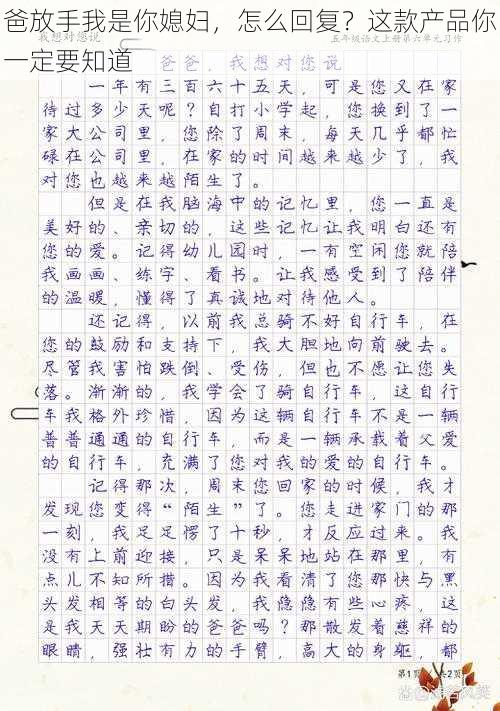 爸放手我是你媳妇，怎么回复？这款产品你
一定要知道
我想对您说
五年级语文上册第六单元习作
爸爸，我想对您说
一年有三百六十五天，可是您又在家
待过多少天呢？自打小学起，您换到了一
家大公司里，您除了周末，每天几乎都忙
碌在公司里，在家的时间越来越少了，我
对您也越来越陌生了。
但是在我脑海中的记忆里，您一直是
美好的、亲切的，这些记忆让我明白还有
您的爱。记得幼儿园时，一有空闲您就陪
我画画、练字、看书。让我感受到了陪伴
的温暖，懂得了真诚地对待他人。
还记得，以前我总骑不好自行车，在
您的鼓励和支持下，我大胆地向前驶去。
尽管我害怕跌倒、受伤，但也不愿让您失
落。渐渐的，我学会了骑自行车，这自行
车我格外珍惜，因为这辆自行车不是一辆
普普通通的自行车，而是一辆承载着父爱
的自行车，充满了您对我的爱的自行车。
记得那次，周末您回家的时候，我才
发现您变得“陌生”了。您走进家门的那
一刻，我足足愣了十秒，才反应过来。我
没有上前迎接，只是呆呆地站在那里，有
点儿不知所措。因为我看清了您那快与黑
头发相等的白头发，我隐隐有些心疼，这
是我天天期盼的爸爸吗？那散发着慈祥的
眼睛，强壮有力的手臂，高大的身躯，都
第1页 / 共2页